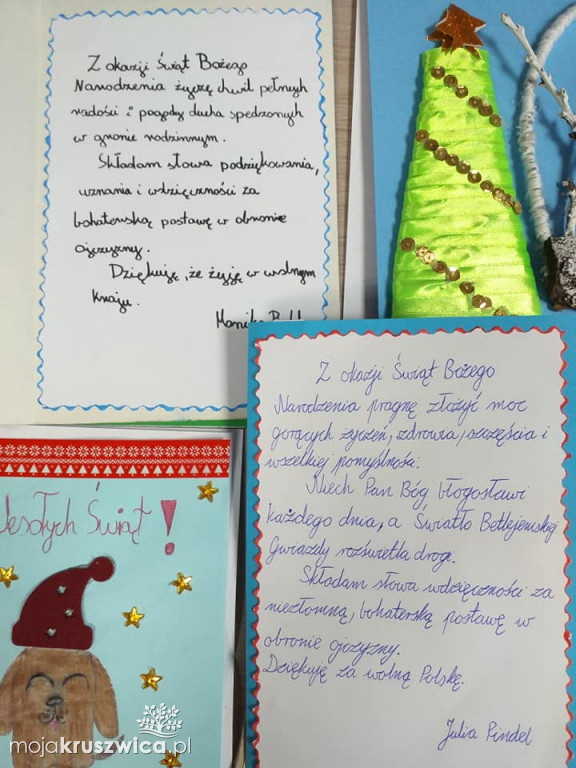 Z okazji Świąt Bożego
Narodzenia życzę chwil pełnych
radości i pogody ducha spędzonych
w gronie rodzinnym.
Składam słowa podziękowania,
uznania i wdzięczności za
bohaterską postawę w obronie
ojczyzny.
Dziękuję, że żyję w wolnym
kraju.
Monika
Z okazji Świąt Bożego
Narodzenia pragnę złożyć moc
gorących życzeń, zdrowia, szczęścia i
wszelkiej pomyślności.
Niech Pan Bóg błogosławi
każdego dnia, a Światło Betlejemskiej
Gwiazdy rozświetla drogę.
Składam słowa wdzięczności za
niezłomną, bohaterską postawę w
obronie ojczyzny.
Dziękuję za wolną Polskę.
Julia Pindel
esołych Świąt!
mojakruszwica.pl